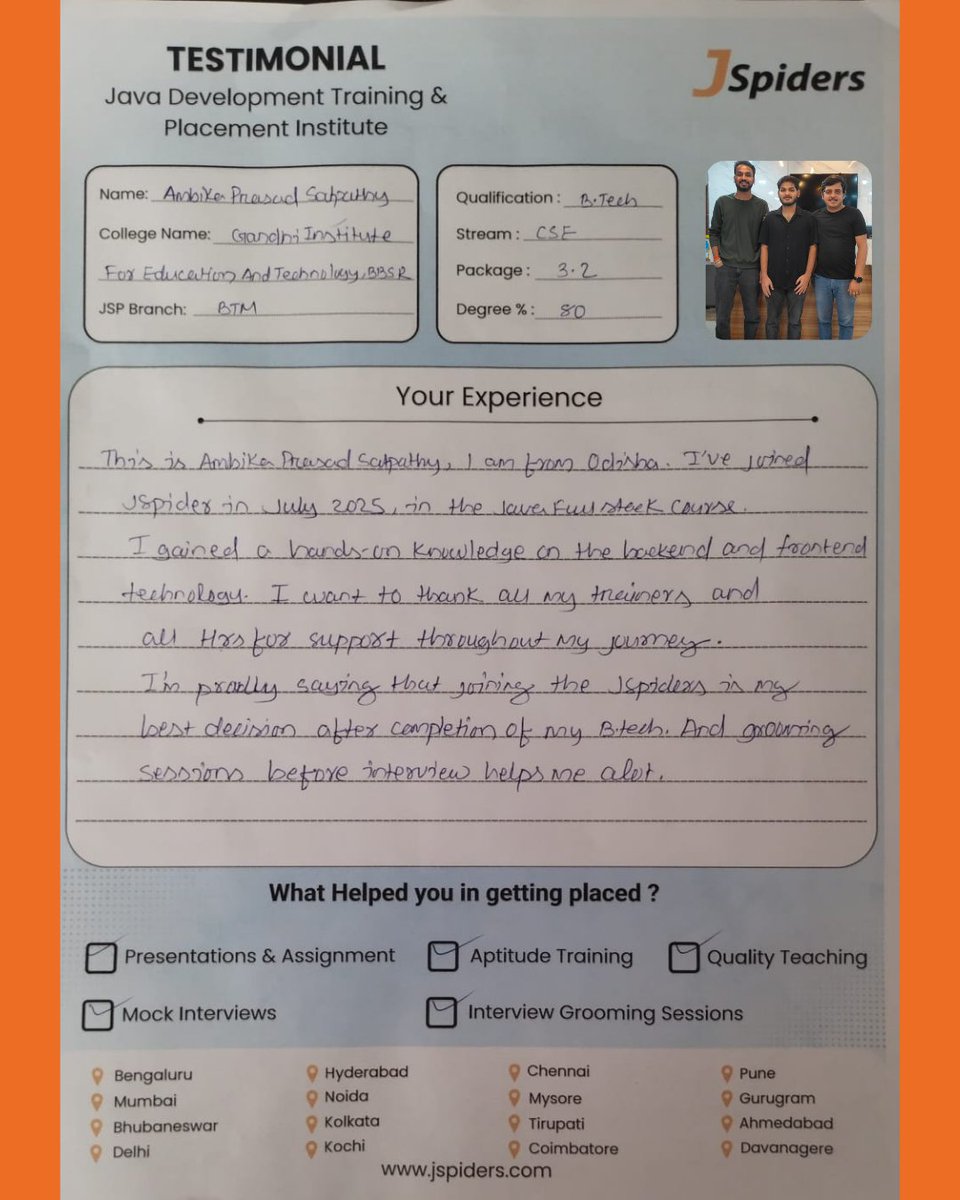 TESTIMONIAL
Java Development Training &
Placement Institute
JSpiders
Name: Ambika Prasad Satpathy
College Name: Gandhi Institute
For Education And Technology, BBSR
JSP Branch: BTM
Qualification : B.Tech
Stream : CSE
Package : 3.2
Degree % : 80
Your Experience
This is Ambika Prasad Satpathy, I am from Odisha. I've joined
JSpider in July 2025, in the Java Full stack course.
I gained a hands-on knowledge on the backend and frontend
technology. I want to thank all my trainers and
all Hrs for support throughout my journey.
I'm proudly saying that joining the JSpiders is my
best decision after completion of my Btech. And grooming
sessions before interview helps me alot.
What Helped you in getting placed ?
Presentations & Assignment
Aptitude Training
Quality Teaching
Mock Interviews
Interview Grooming Sessions
Bengaluru
Mumbai
Bhubaneswar
Delhi
Hyderabad
Noida
Kolkata
Kochi
Chennai
Mysore
Tirupati
Coimbatore
Pune
Gurugram
Ahmedabad
Davanagere
www.jspiders.com